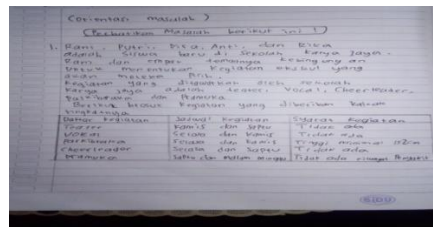 (Orientasi masalah)
(Perhatikan Masalah berikut ini!)
1. Rani, Putri, Rika, Anti, dan Rika
adalah siswa baru di sekolah Karya Jaya.
Rani dan empat temannya kebingungan
untuk menentukan kegiatan ekskul yang
akan mereka Pilih.
Kegiatan yang diadakan oleh sekolah
Karya Jaya adalah teater, Vocal, Cheerleader,
Paskibraka dan Pramuka.
Berikut brosur kegiatan yang diberikan
Daftar kegiatan Jadwal Kegiatan Syarat Kegiatan
Theater Kamis dan Sabtu Tidak ada
Vokal Selasa dan Kamis Tidak ada
Paskibraka Selasa dan Kamis Tinggi minimal
Cheerleader Selasa dan Sabtu Tidak ada
Pramuka Sabtu dan Malam minggu Tidak ada